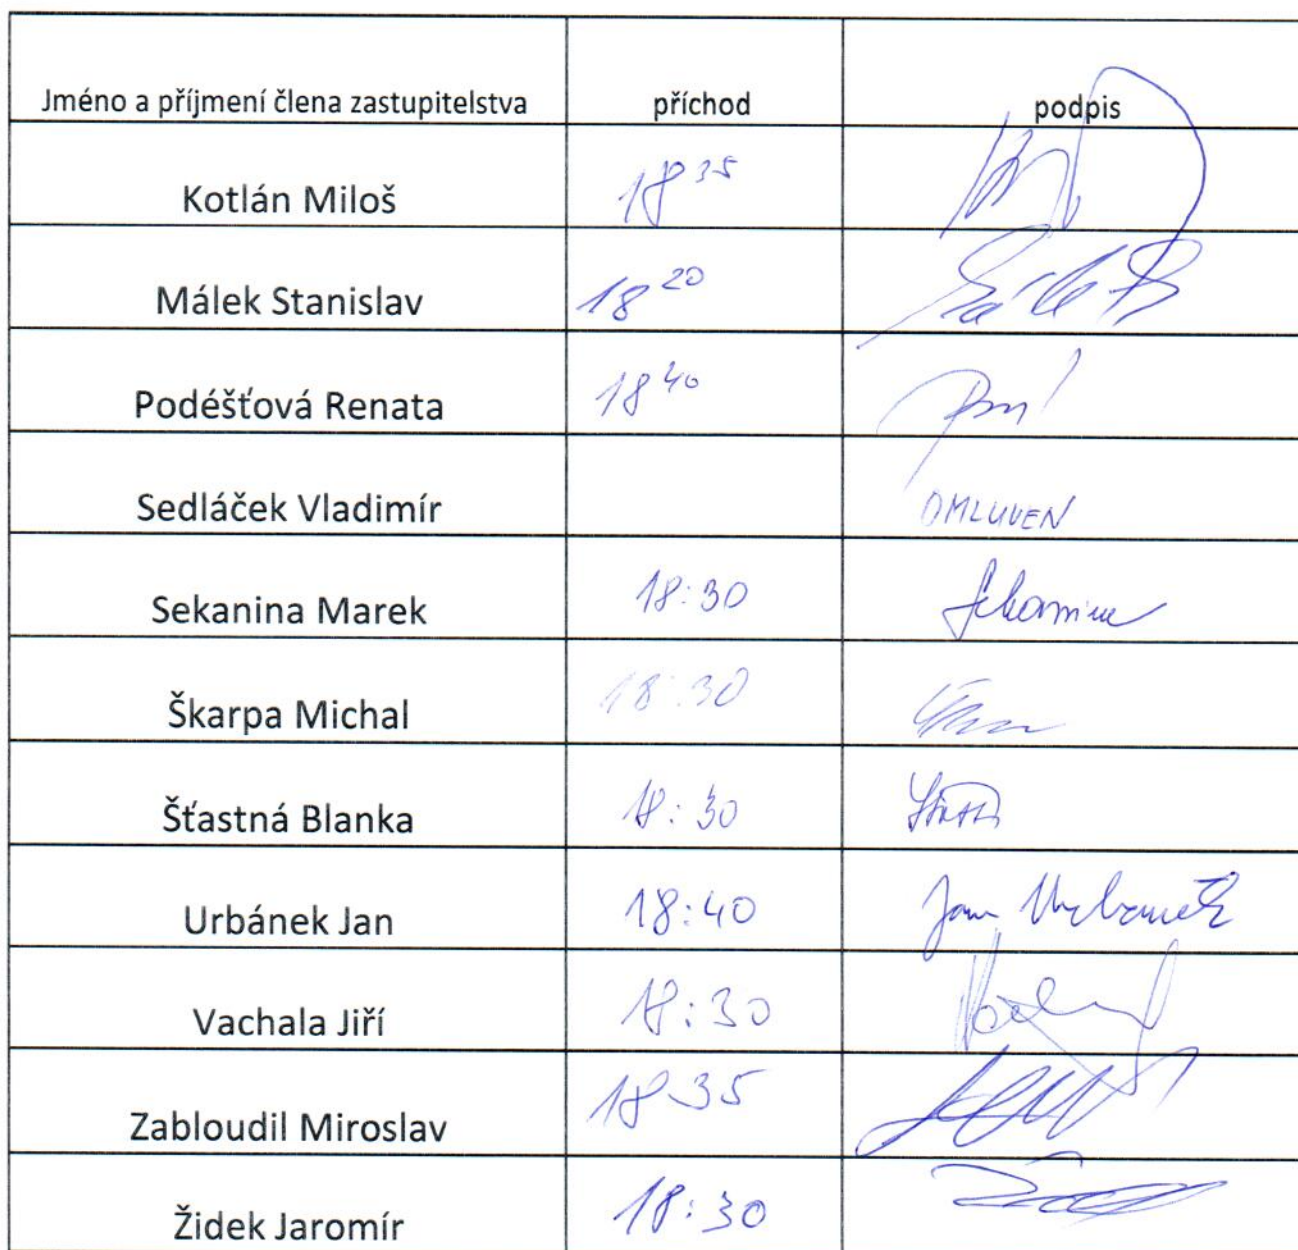 Jméno a příjmení člena zastupitelstva příchod podpis
Kotlán Miloš 18 35
Málek Stanislav 18 20
Podéšťová Renata 18 40
Sedláček Vladimír OMLUVEN
Sekanina Marek 18:30 Sekanina
Škarpa Michal 18:30
Šťastná Blanka 18:30
Urbánek Jan 18:40 Jan Urbánek
Vachala Jiří 18:30
Zabloudil Miroslav 18 35
Židek Jaromír 18:30